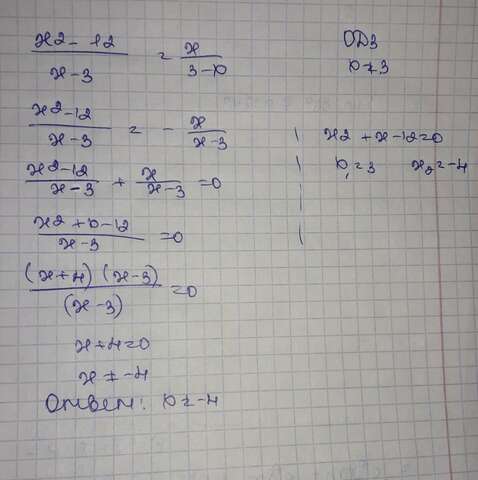 x2 - 12 / x - 3 = x / 3 - x
ОДЗ
x ≠ 3
x2 - 12 / x - 3 = - x / x - 3
x2 + x - 12 = 0
x1 = 3 x2 = -4
x2 - 12 / x - 3 + x / x - 3 = 0
x2 + x - 12 / x - 3 = 0
(x + 4) (x - 3) / (x - 3) = 0
x + 4 = 0
x = -4
Ответ: x = -4